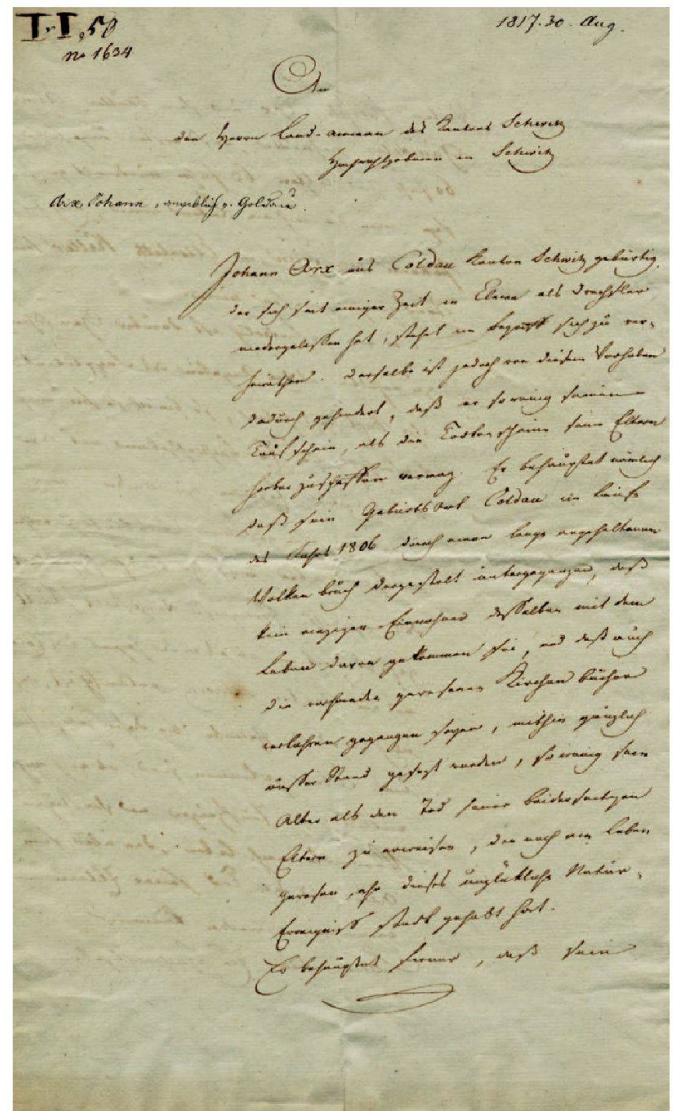 I.I.50
no 1634
1817. 30. Aug.
An
den Herrn Land-amann des Kantons Schwitz
Hochwohlgeboren in Schwitz
Arx Johann, angeblich v. Goldau.
Johann Arx aus Coldau Kanton Schwitz gebürtig,
der sich seit einiger Zeit in als Drechsler
niedergelassen hat, stehet im Begriff sich zu ver-
heirathen. Derselbe ist jedoch von diesem Vorhaben
dadurch gehindert, daß er so wenig seinen
Taufschein, als die Todtenscheine seiner Eltern
herbei zuschaffen vermag. Er behauptet nämlich
daß sein Geburtsort Coldau im Laufe
des Jahrs 1806 durch einen lange angehaltenen
Wolkenbruch dergestalt untergegangen, daß
kein einziger Einwohner desselben mit dem
Leben davon gekommen sei, und daß auch
die vorhanden gewesenen Kirchenbücher
verlohren gegangen seyen, mithin gänzlich
ausser Stand gesetzt worden, so wenig sein
Alter als den Tod seiner beiderseitigen
Eltern zu erweisen, die noch am Leben
gewesen, ehe dieses unglükliche Natur-
Ereigniß statt gehabt hat.
Er behauptet ferner, daß sein